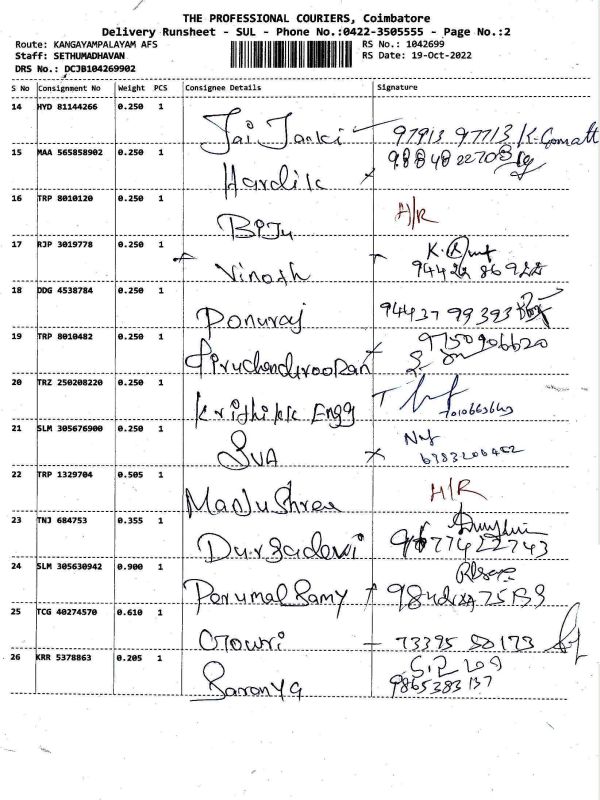 THE PROFESSIONAL COURIERS, Coimbatore
Delivery Runsheet - SUL - Phone No.:0422-3505555 - Page No.:2
Route: KANGAYAMPALAYAM AFS RS No.: 1042699
Staff: SETHUMADHAVAN RS Date: 19-Oct-2022
DRS No.: DCJB104269902
S No Consignment No Weight PCS Consignee Details Signature
14 HYD 81144266 0.250 1
Jai Janki 97913 97713
15 MAA 565858902 0.250 1
Hardik
16 TRP 8010120 0.250 1
Biju H/R
17 RJP 3019778 0.250 1
Vinoth
18 DDG 4538784 0.250 1
Ponuraj 94437 99393
19 TRP 8010482 0.250 1
9750906620
20 TRZ 250208220 0.250 1
Engg
21 SLM 305676900 0.250 1
SUA
22 TRP 1329704 0.505 1
Manju Shree H/R
23 TNJ 684753 0.355 1
Durgadevi
24 SLM 305630942 0.900 1
Perumal Samy
25 TCG 40274570 0.610 1
Gowri
26 KRR 5378863 0.205 1
Saranya 9865383137